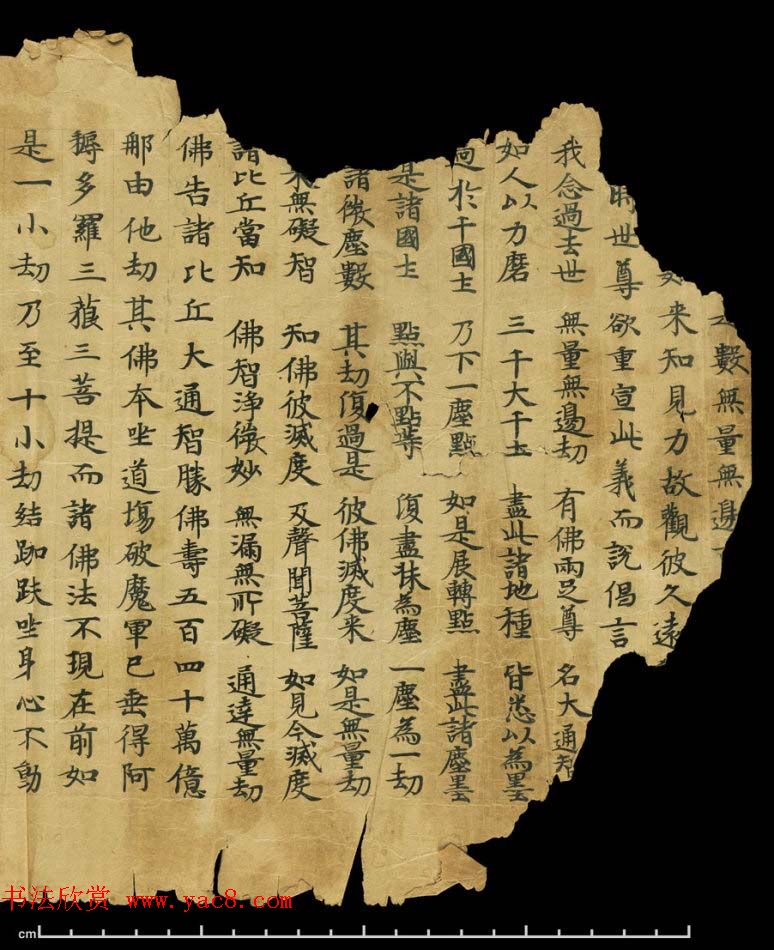 數無量無邊
來知見力故觀彼久遠
時世尊欲重宣此義而說偈言
我念過去世 無量無邊劫 有佛兩足尊 名大通智
如人以力磨 三千大千土 盡此諸地種 皆悉以為墨
過於千國土 乃下一塵點 如是展轉點 盡此諸塵墨
是諸國土 點與不點等 復盡抹為塵 一塵為一劫
諸微塵數 其劫復過是 彼佛滅度来 如是無量劫
無礙智 知佛彼滅度 及聲聞菩薩 如見今滅度
諸比丘當知 佛智淨微妙 無漏無所礙 通達無量劫
佛告諸比丘大通智勝佛壽五百四十萬億
那由他劫其佛本坐道場破魔軍已垂得阿
耨多羅三藐三菩提而諸佛法不現在前如
是一小劫乃至十小劫結跏趺坐身心不動
书法欣赏 www.yac8.com
cm